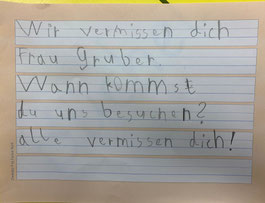 Wir vermissen dich
Frau Gruber.
Wann kommst
du uns besuchen?
alle vermissen dich!